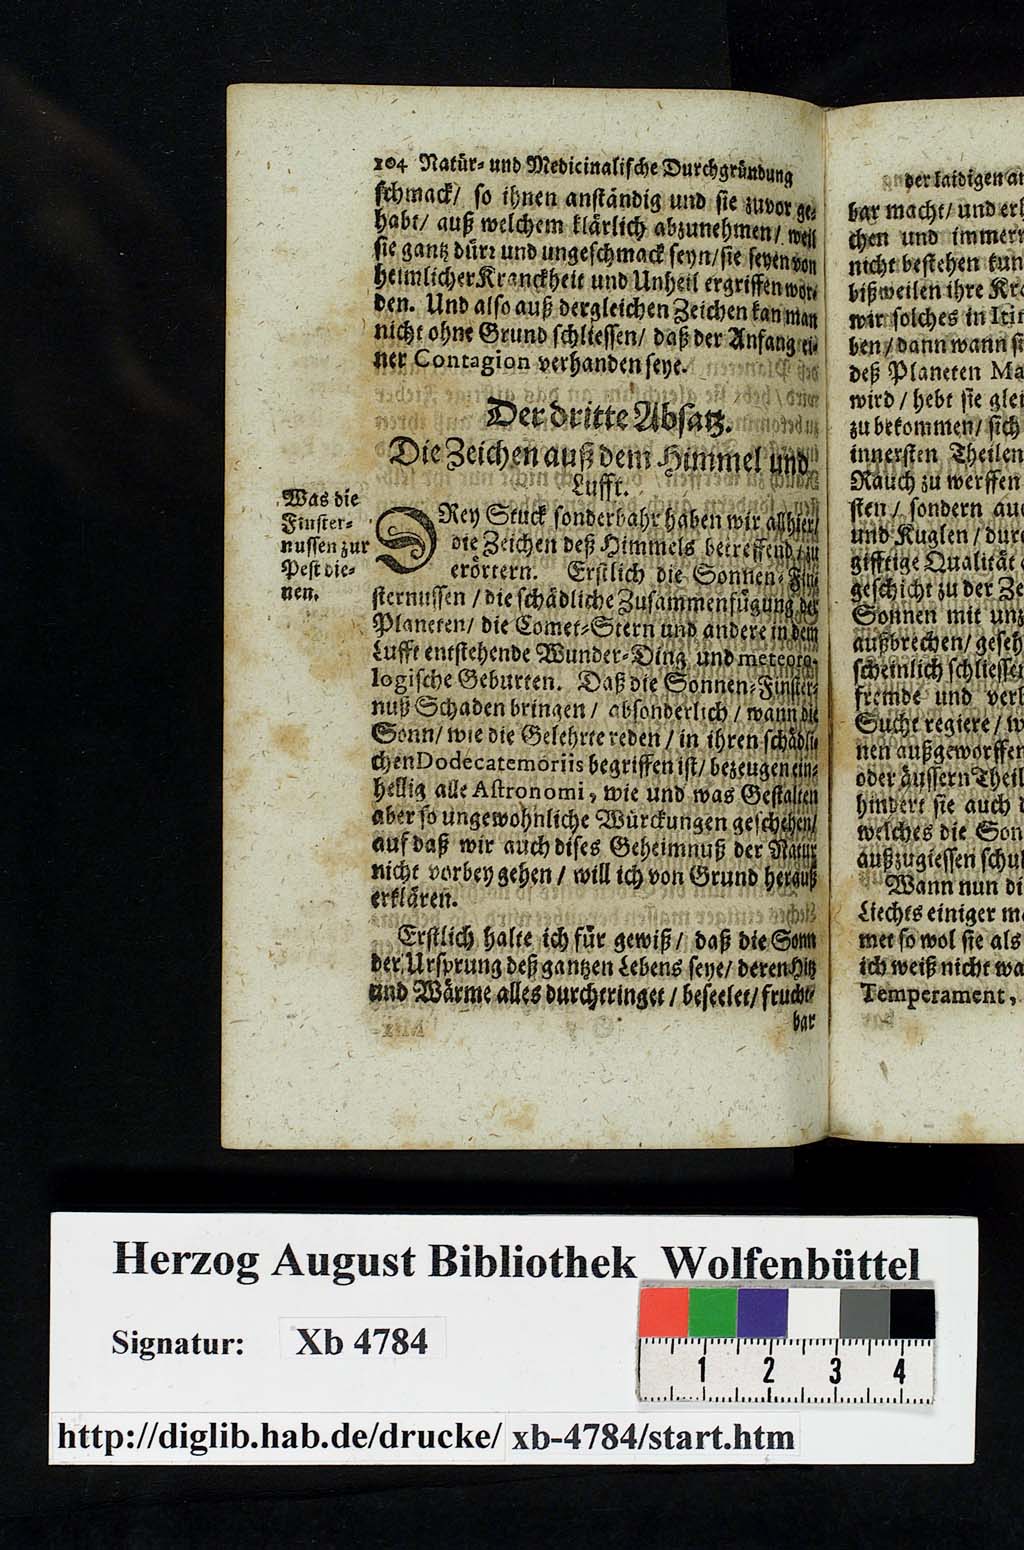 104 Natür- und Medicinalische Durchgründung
schmack/ so ihnen anständig und sie zuvor ge-
habt/ auß welchem klärlich abzunehmen/ weil
sie gantz dürr und ungeschmack seyn/ sie seyen von
heimlicher Kranckheit und Unheil ergriffen wor-
den. Und also auß dergleichen Zeichen kan man
nicht ohne Grund schliessen/ daß der Anfang ei-
ner Contagion verhanden seye.
Der dritte Absatz.
Die Zeichen auß dem Himmel und
Lufft.
Was die
Finster-
nussen zur
Pest die-
nen.
DRey Stuck sonderbahr haben wir allhier/
die Zeichen deß Himmels betreffend/ zu
erörtern. Erstlich die Sonnen-Fin-
sternussen / die schädliche Zusammenfügung der
Planeten/ die Comet-Stern und andere in dem
Lufft entstehende Wunder-Ding und meteoro-
logische Geburten. Daß die Sonnen-Finster-
nuß Schaden bringen / absonderlich / wann die
Sonn/ wie die Gelehrte reden / in ihren schädli-
chen Dodecatemoriis begriffen ist/ bezeugen ein-
hellig alle Astronomi, wie und was Gestalten
aber so ungewohnliche Würckungen geschehen/
auf daß wir auch dises Geheimnuß der Natur
nicht vorbey gehen / will ich von Grund herauß
erklären.
Erstlich halte ich für gewiß/ daß die Sonn
der Ursprung deß gantzen Lebens seye/ deren Hitz
und Wärme alles durchtringet / beseelet/ frucht-
bar
der laidigen
bar macht/ und
chen und
nicht bestehen
bißweilen ihre
wir solches in
ben/ dann wann
deß Planeten
wird / hebt sie
zu bekommen/ sich
innersten Theilen
Rauch zu werffen
sten / sondern
und Kuglen /
gifftige Qualität
geschicht zu der
Sonnen mit
außbrechen/
scheinlich
fremde und
Sucht regiere/
nen außgeworffen
oder äussern
hindert sie auch
welches die
außzugiessen
Wann nun
Liechts einiger
met so wol sie als
ich weiß nicht
Temperament,
Herzog August Bibliothek Wolfenbüttel
Signatur: Xb 4784
1 2 3 4
http://diglib.hab.de/drucke/ xb-4784/start.htm